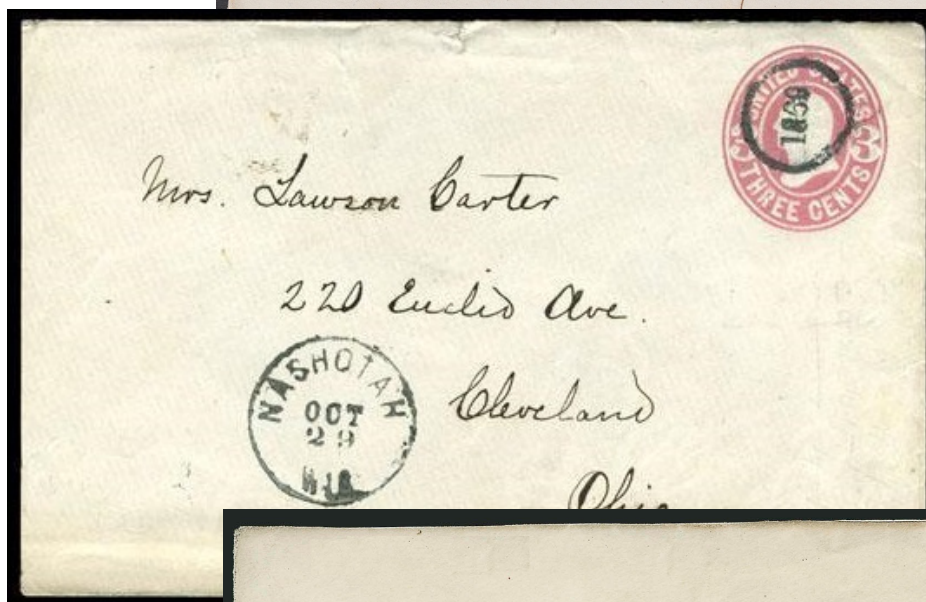 UNITED STATES
1869
THREE CENTS
Mrs. Lawson Carter
220 Euclid Ave.
Cleveland
Ohio
NASHOTAH
OCT
29
WIS